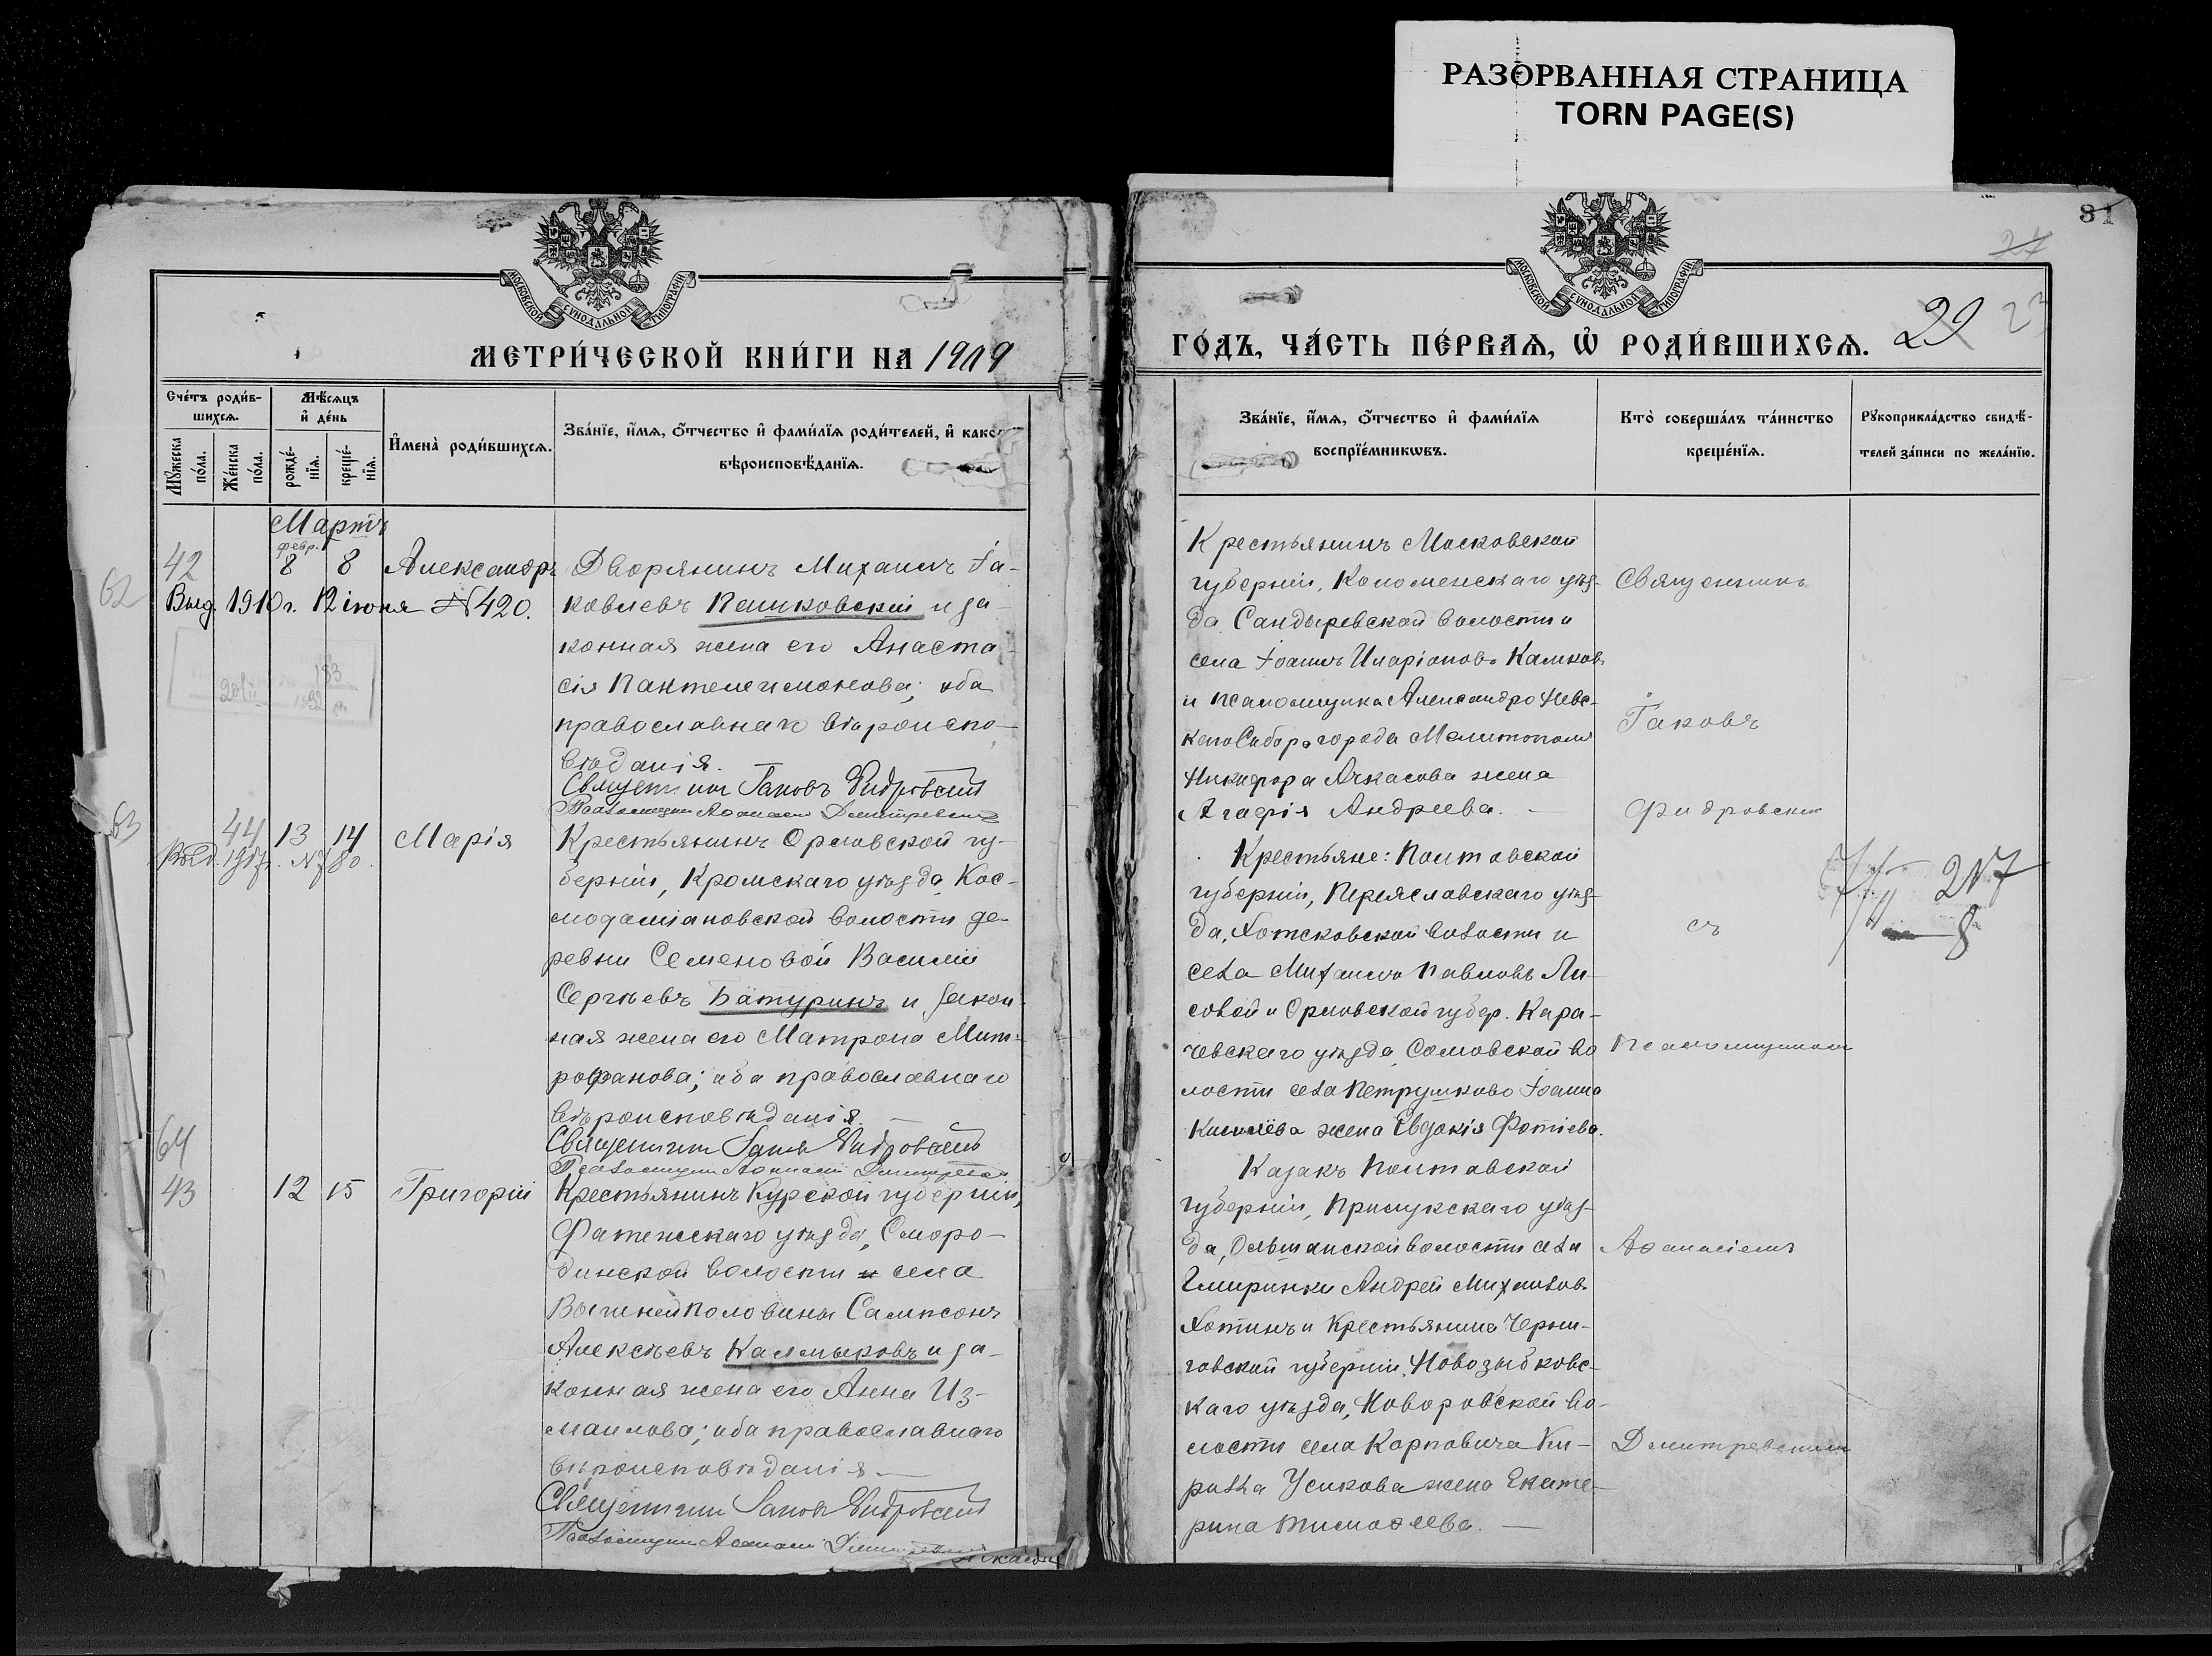 РАЗОРВАННАЯ СТРАНИЦА
TORN PAGE(S)
МОСКОВСКОЙ СѴНОДАЛЬНОЙ ТИПОГРАФІИ
МЕТРИ́ЧЕСКОЙ КНИ́ГИ НА 1909
Сче́тъ роди́в-
шихсѧ.
Мѣ́сѧцъ
и҆ де́нь
Мꙋ́жеска
по́ла.
Же́нска
по́ла.
рожде́-
нїѧ.
креще́-
нїѧ.
И҆мена̀ роди́вшихсѧ.
Зва́нїе, и҆́мѧ, ѻ҆́тчество и҆ фами́лїѧ роди́телей, и҆ како́
вѣроисповѣ́данїѧ.
Мартъ
февр.
62
42 8 8 Александръ
Выд. 1910 г. 12 іюня № 420.
Дворянинъ Михаилъ Іа-
ковлевъ Пешковскій и за-
конная жена его Анаста-
сія Пантелеимонова; оба
православнаго вѣроиспо-
вѣданія.
Священникъ Іаковъ Ѳидровскій
Псаломщикъ Аѳанасій Димитревскій
63
44 13 14 Марія
Крестьянинъ Орловской гу-
берніи, Кромскаго уѣзда, Кос-
модаміановской волости де-
ревни Семеновой Василій
Сергѣевъ Батуринъ и закон-
ная жена его Матрона Мит-
рофанова; оба православнаго
вѣроисповѣданія.
Священникъ Іаковъ Ѳидровскій
Псаломщикъ Аѳанасій Димитревскій
64
43 12 15 Григорій
Крестьянинъ Курской губерніи,
Фатежскаго уѣзда, Сморо-
динской волости и села
половины Сампсонъ
Алексѣевъ Калмыковъ и за-
конная жена его Анна Из-
маилова; оба православнаго
вѣроисповѣданія.
Священникъ Іаковъ Ѳидровскій
Псаломщикъ Аѳанасій Димитревскій
31
27
МОСКОВСКОЙ СѴНОДАЛЬНОЙ ТИПОГРАФІИ
ГО́ДЪ, ЧА́СТЬ ПЕ́РВАѦ, Ѡ҆ РОДИ́ВШИХСѦ. 29 23
Зва́нїе, и҆́мѧ, ѻ҆́тчество и҆ фами́лїѧ
воспрїе́мникѡвъ.
Кто̀ соверша́лъ та́инство
креще́нїѧ.
Рꙋкоприкла́дство свидѣ́-
телей за́писи по жела́нїю.
Крестьянинъ Московской
губерніи, Коломенскаго уѣз-
да, Сандыревской волости и
села Іоаннъ Иларіоновъ
и псаломщика Александро Невс-
каго Собора города Мелитополя
Никифора Ачкасова жена
Агафія Андреева.
Крестьяне: Полтавской
губерніи, Переяславскаго уѣз-
да, Хотсковской волости и
села Михаилъ Павловъ Ли-
совой и Орловской губер. Кара-
чевскаго уѣзда, Соловской во
лости села Петрушково Іоанна
Киселёва жена Евдокія Фотіева.
Казакъ Полтавской
губерніи, Прилукскаго уѣз-
да, Ольшанской волости села
Гмиринки Андрей Михаиловъ
Хотинъ и Крестьянина Черни-
говской губерніи, Новозыбковс-
каго уѣзда, Новоровской во-
лости села Карповича Ки-
рилла Усикова жена Екате-
рина Тимоѳеева.
Священникъ
Іаковъ
Фидровскій
съ
псаломщикомъ
Аѳанасіемъ
Димитревскимъ
217
8